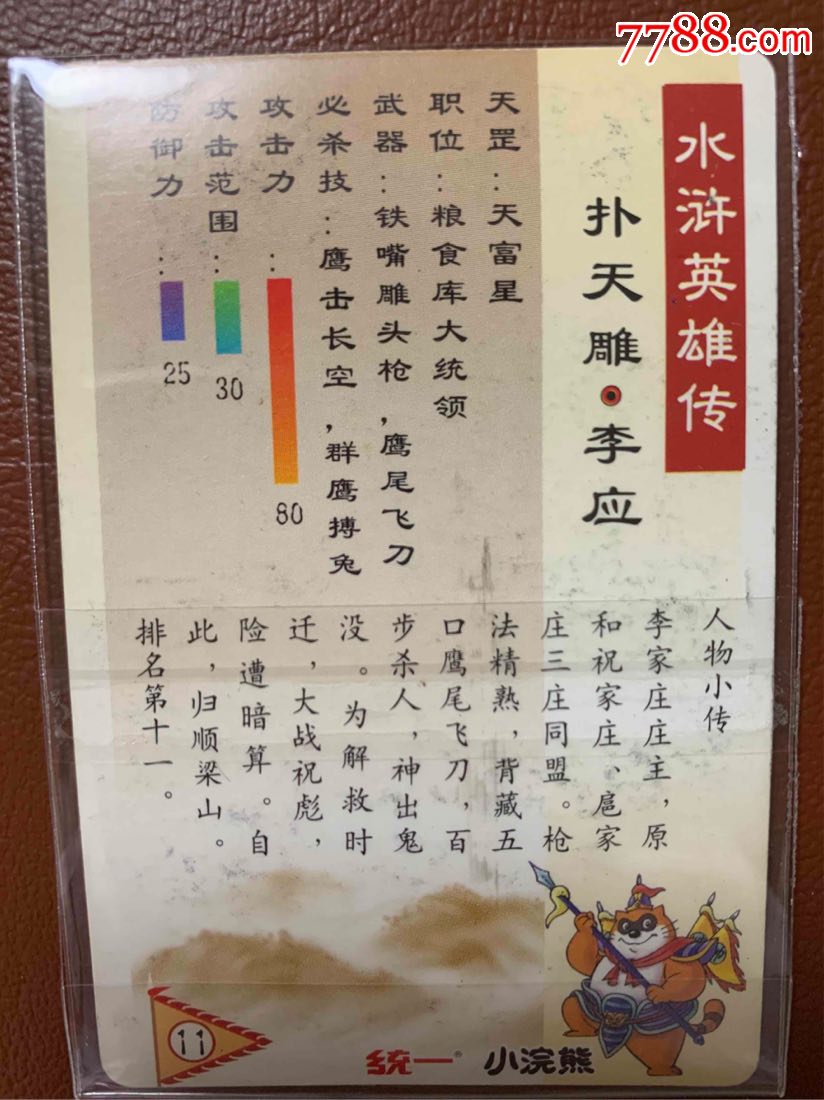 7788.com
水浒英雄传
扑天雕·李应
天罡：天富星
职位：粮食库大统领
武器：铁嘴雕头枪，鹰尾飞刀
必杀技：鹰击长空，群鹰搏兔
攻击力：
80
攻击范围：
30
防御力：
25
人物小传
李家庄庄主，原
和祝家庄、扈家
庄三庄同盟。枪
法精熟，背藏五
口鹰尾飞刀，百
步杀人，神出鬼
没。为解救时
迁，大战祝彪，
险遭暗算。自
此，归顺梁山。
排名第十一。
11
统一® 小浣熊